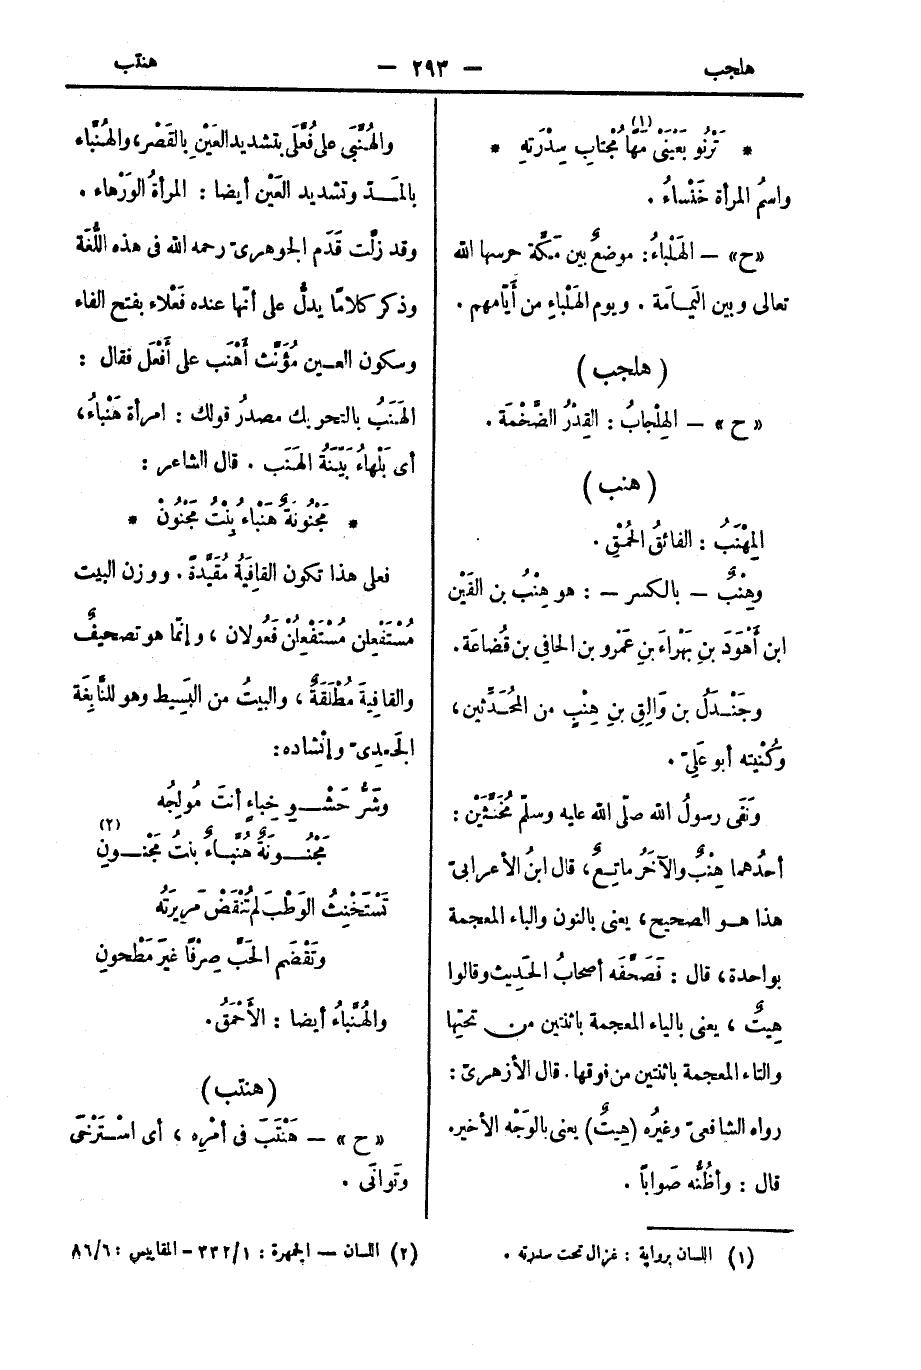 هلجب — ٢٩٣ — هنتب
* تَرْنُو بِعَيْنَىْ مَهًا مُجْتابِ سِدْرَتِهِ (١) *
واسمُ المرأة خَنْساءُ .
«ح» — الهَلْباءُ: موضعٌ بين مَكّة حرسها الله
تعالى وبين اليَمامَة . ويوم الهَلْباءِ من أَيّامهم .
( هلجب )
«ح» — الهِلْجابُ : القِدْرُ الضَّخْمَة .
( هنب )
المِهْنَبُ : الفائقُ الحُمْقِ .
وهِنْبٌ — بالكسر — : هو هِنْبُ بن القَيْن
ابن أَهْوَدَ بنِ بَهْراءَ بنِ عَمْرو بن الحافي بن قُضاعَة.
وجَنْدَلُ بن وَالِقِ بنِ هِنْبٍ من المُحَدِّثين ،
وكُنْيته أبو عَلِىّ .
ونَفَى رسولُ الله صلّى الله عليه وسلّم مُخَنَّثَيْن :
أحدُهما هِنْبٌ والآخَرُ ماتِعٌ ، قال ابنُ الأعرابىّ
هذا هو الصحيح ، يعنى بالنون والباء المعجمة
بواحدة ، قال : فَصَحَّفَه أصحابُ الحَدِيث وقالوا
هِيتٌ ، يعنى بالياء المعجمة باثنتين من تحتِها
والتاء المعجمة باثنتين من فوقها . قال الأزهرىّ :
رواه الشافعىّ وغيرُه (هِيتٌ) يعنى بالوَجْه الأخير.
قال : وأظُنُّه صَواباً .
(١) اللسان برواية : غزال تحت سدرته .
والهُنَّبَى على فُعَّلَى بتشديد العَيْنِ بالقَصْر، والهُنَّباء
بالمَدّ وتشديد العَيْن أيضا : المرأةُ الوَرْهاء .
وقد زلّت قَدَم الجوهرىّ رحمه الله فى هذه اللُّغَة
وذكر كلامًا يدلُّ على أنّها عنده فَعْلاء بفتح الفاء
وسكون العين مُؤَنَّث أَهْنَب على أَفْعَل فقال :
الهَنَبُ بالتحريك مصدرُ قولك : امرأة هَنْباءُ ،
أى بَلْهاءُ بَيِّنَةُ الهَنَب . قال الشاعر :
* مَجْنُونَةٌ هَنْباءُ بِنْتُ مَجْنُونْ *
فعلى هذا تكون القافِيَةُ مُقَيَّدَةً . ووزن البيت
مُسْتَفْعِلن مُسْتَفْعِلُنْ فَعُولان ، وإنّما هو تصحيفٌ
والقافِيةُ مُطْلَقَةٌ ، والبيتُ من البَسِيط وهو للنَّابِغَة
الجَعدِىّ وإنْشاده:
وشَرُّ حَشْوِ خِباءٍ أنتَ مُولِجُه
مَجْنُونَةٌ هُنَّباءٌ بنتُ مَجْنُونِ (٢)
تَسْتَخْنِثُ الوَطْبَ لم تُنْقَضْ مَرِيرَتُه
وتَقْضَم الحَبَّ صِرْفًا غيرَ مَطْحونِ
والهُنَّباءُ أيضا : الأَحْمَقُ.
( هنتب )
«ح» — هَنْتَبَ فى أَمْرِه ، أى اسْتَرْخَى
وتَوانَى .
(٢) اللسان — الجمهرة : ٣٣٢/١ - المقاييس : ٨٦/٦